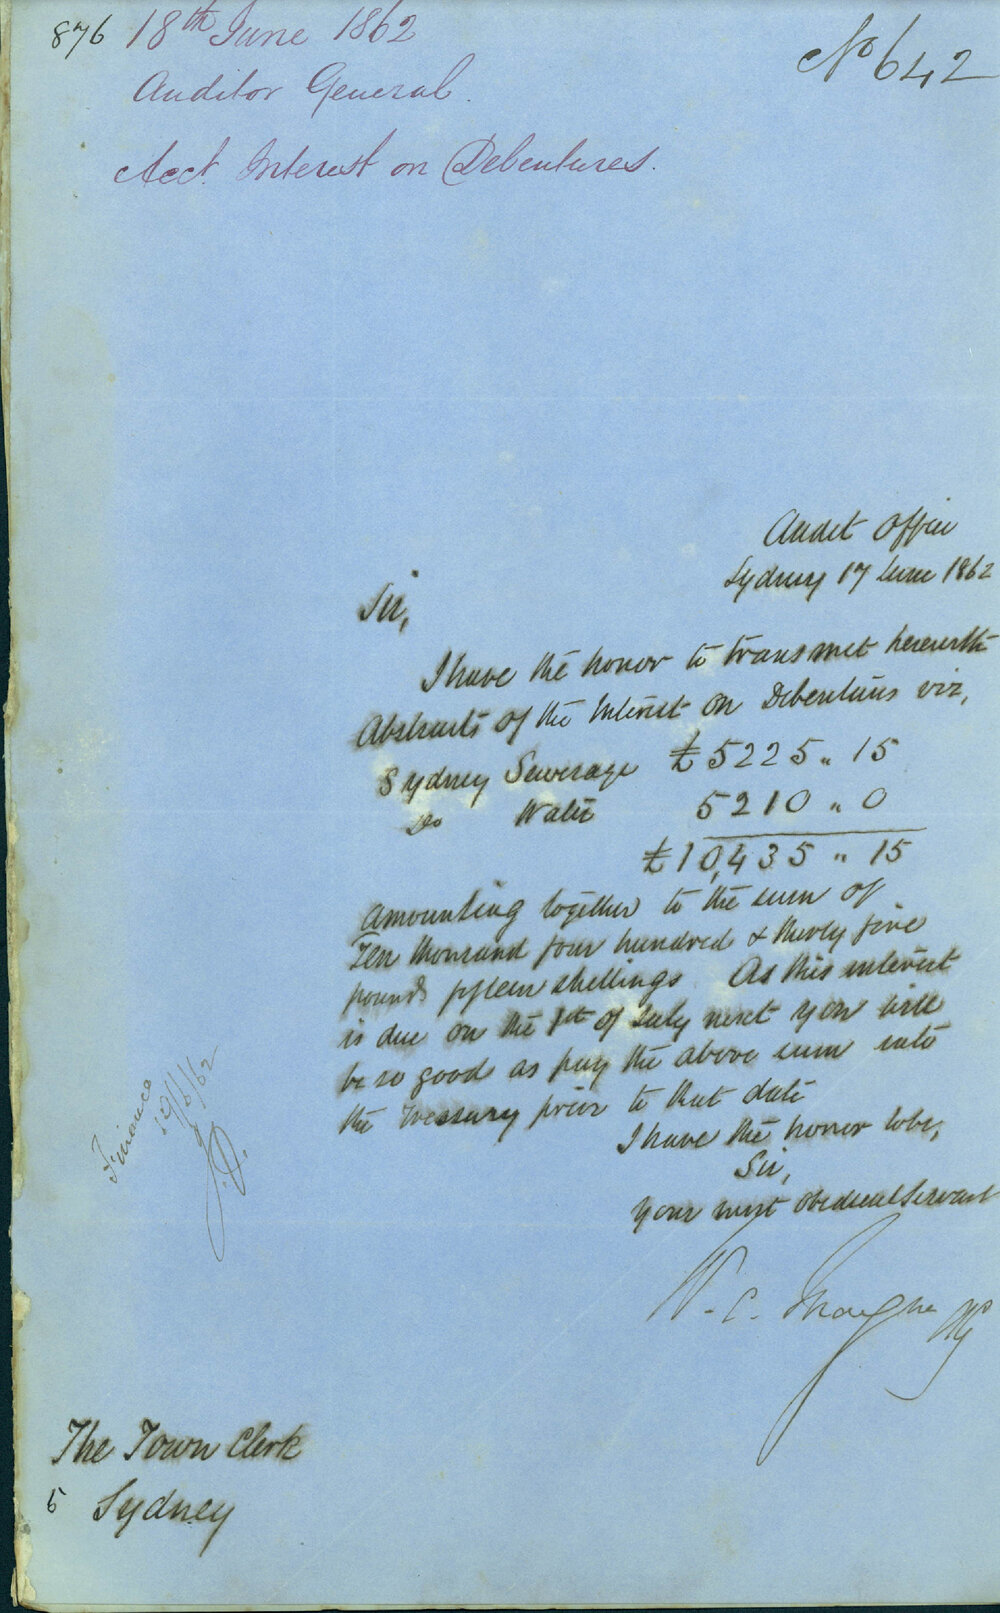 876 18th June 1862
No 642
Auditor General.
Acct. Interest on Debentures.
Audit Office
Sydney 17 June 1862
Sir,
I have the honor to transmit herewith
Abstracts of the Interest on Debentures viz,
Sydney Sewerage £5225 " 15
Do Water 5210 " 0
£10,435 " 15
Amounting together to the sum of
Ten thousand four hundred & thirty five
pounds fifteen shellings. As this interest
is due on the 1st of July next you will
be so good as pay the above sum into
the Treasury prior to that date
I have the honor to be,
Sir,
Your most obedient Servant
W. C.
Finance
19/6/62
The Town Clerk
5 Sydney